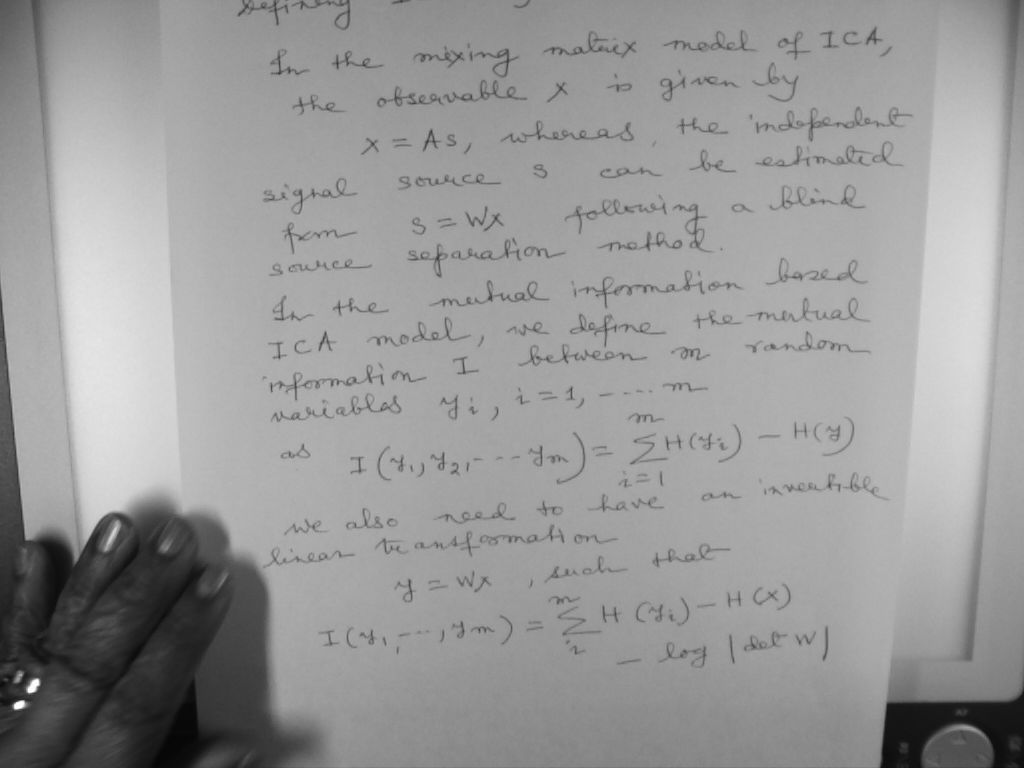 Defining
In the mixing matrix model of ICA,
the observable x is given by
x = As, whereas, the independent
signal source s can be estimated
from s = Wx following a blind
source separation method.
In the mutual information based
ICA model, we define the mutual
information I between m random
variables yi, i = 1, ----- m
as I (y1, y2, --- ym) = m∑i=1 H(yi) – H(y)
we also need to have an invertible
linear transformation
y = Wx , such that
I (y1, ---, ym) = m∑i H (yi) – H (x)
– log |det W|